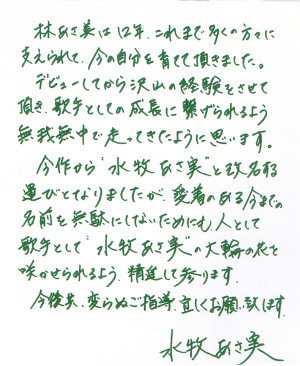 林あさ美は12年、これまで多くの方々に
支えられて、今の自分を育てて頂きました。
デビューしてから沢山の経験をさせて
頂き、歌手としての成長に繋げられるよう
無我無中で走ってきたように思います。
今作から"水牧あさ美"と改名する
運びとなりましたが、愛着のある今までの
名前を無駄にしないためにも、人として
歌手として"水牧あさ美"の大輪の花を
咲かせられるよう、精進して参ります。
今後共、変らぬご指導、宜しくお願い致します。
水牧あさ美